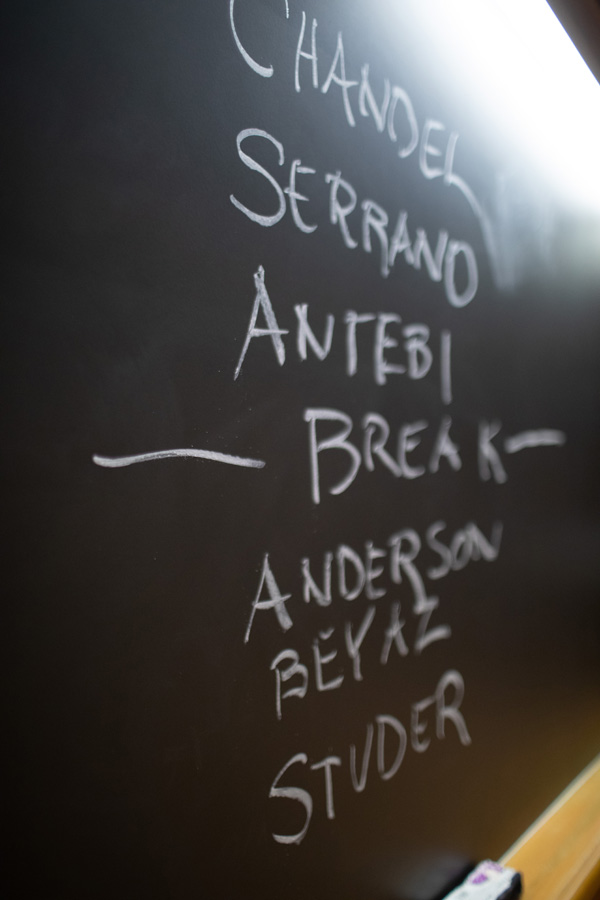 CHANDEL
SERRANO
ANTEBI
— BREAK —
ANDERSON
BEYAZ
STUDER